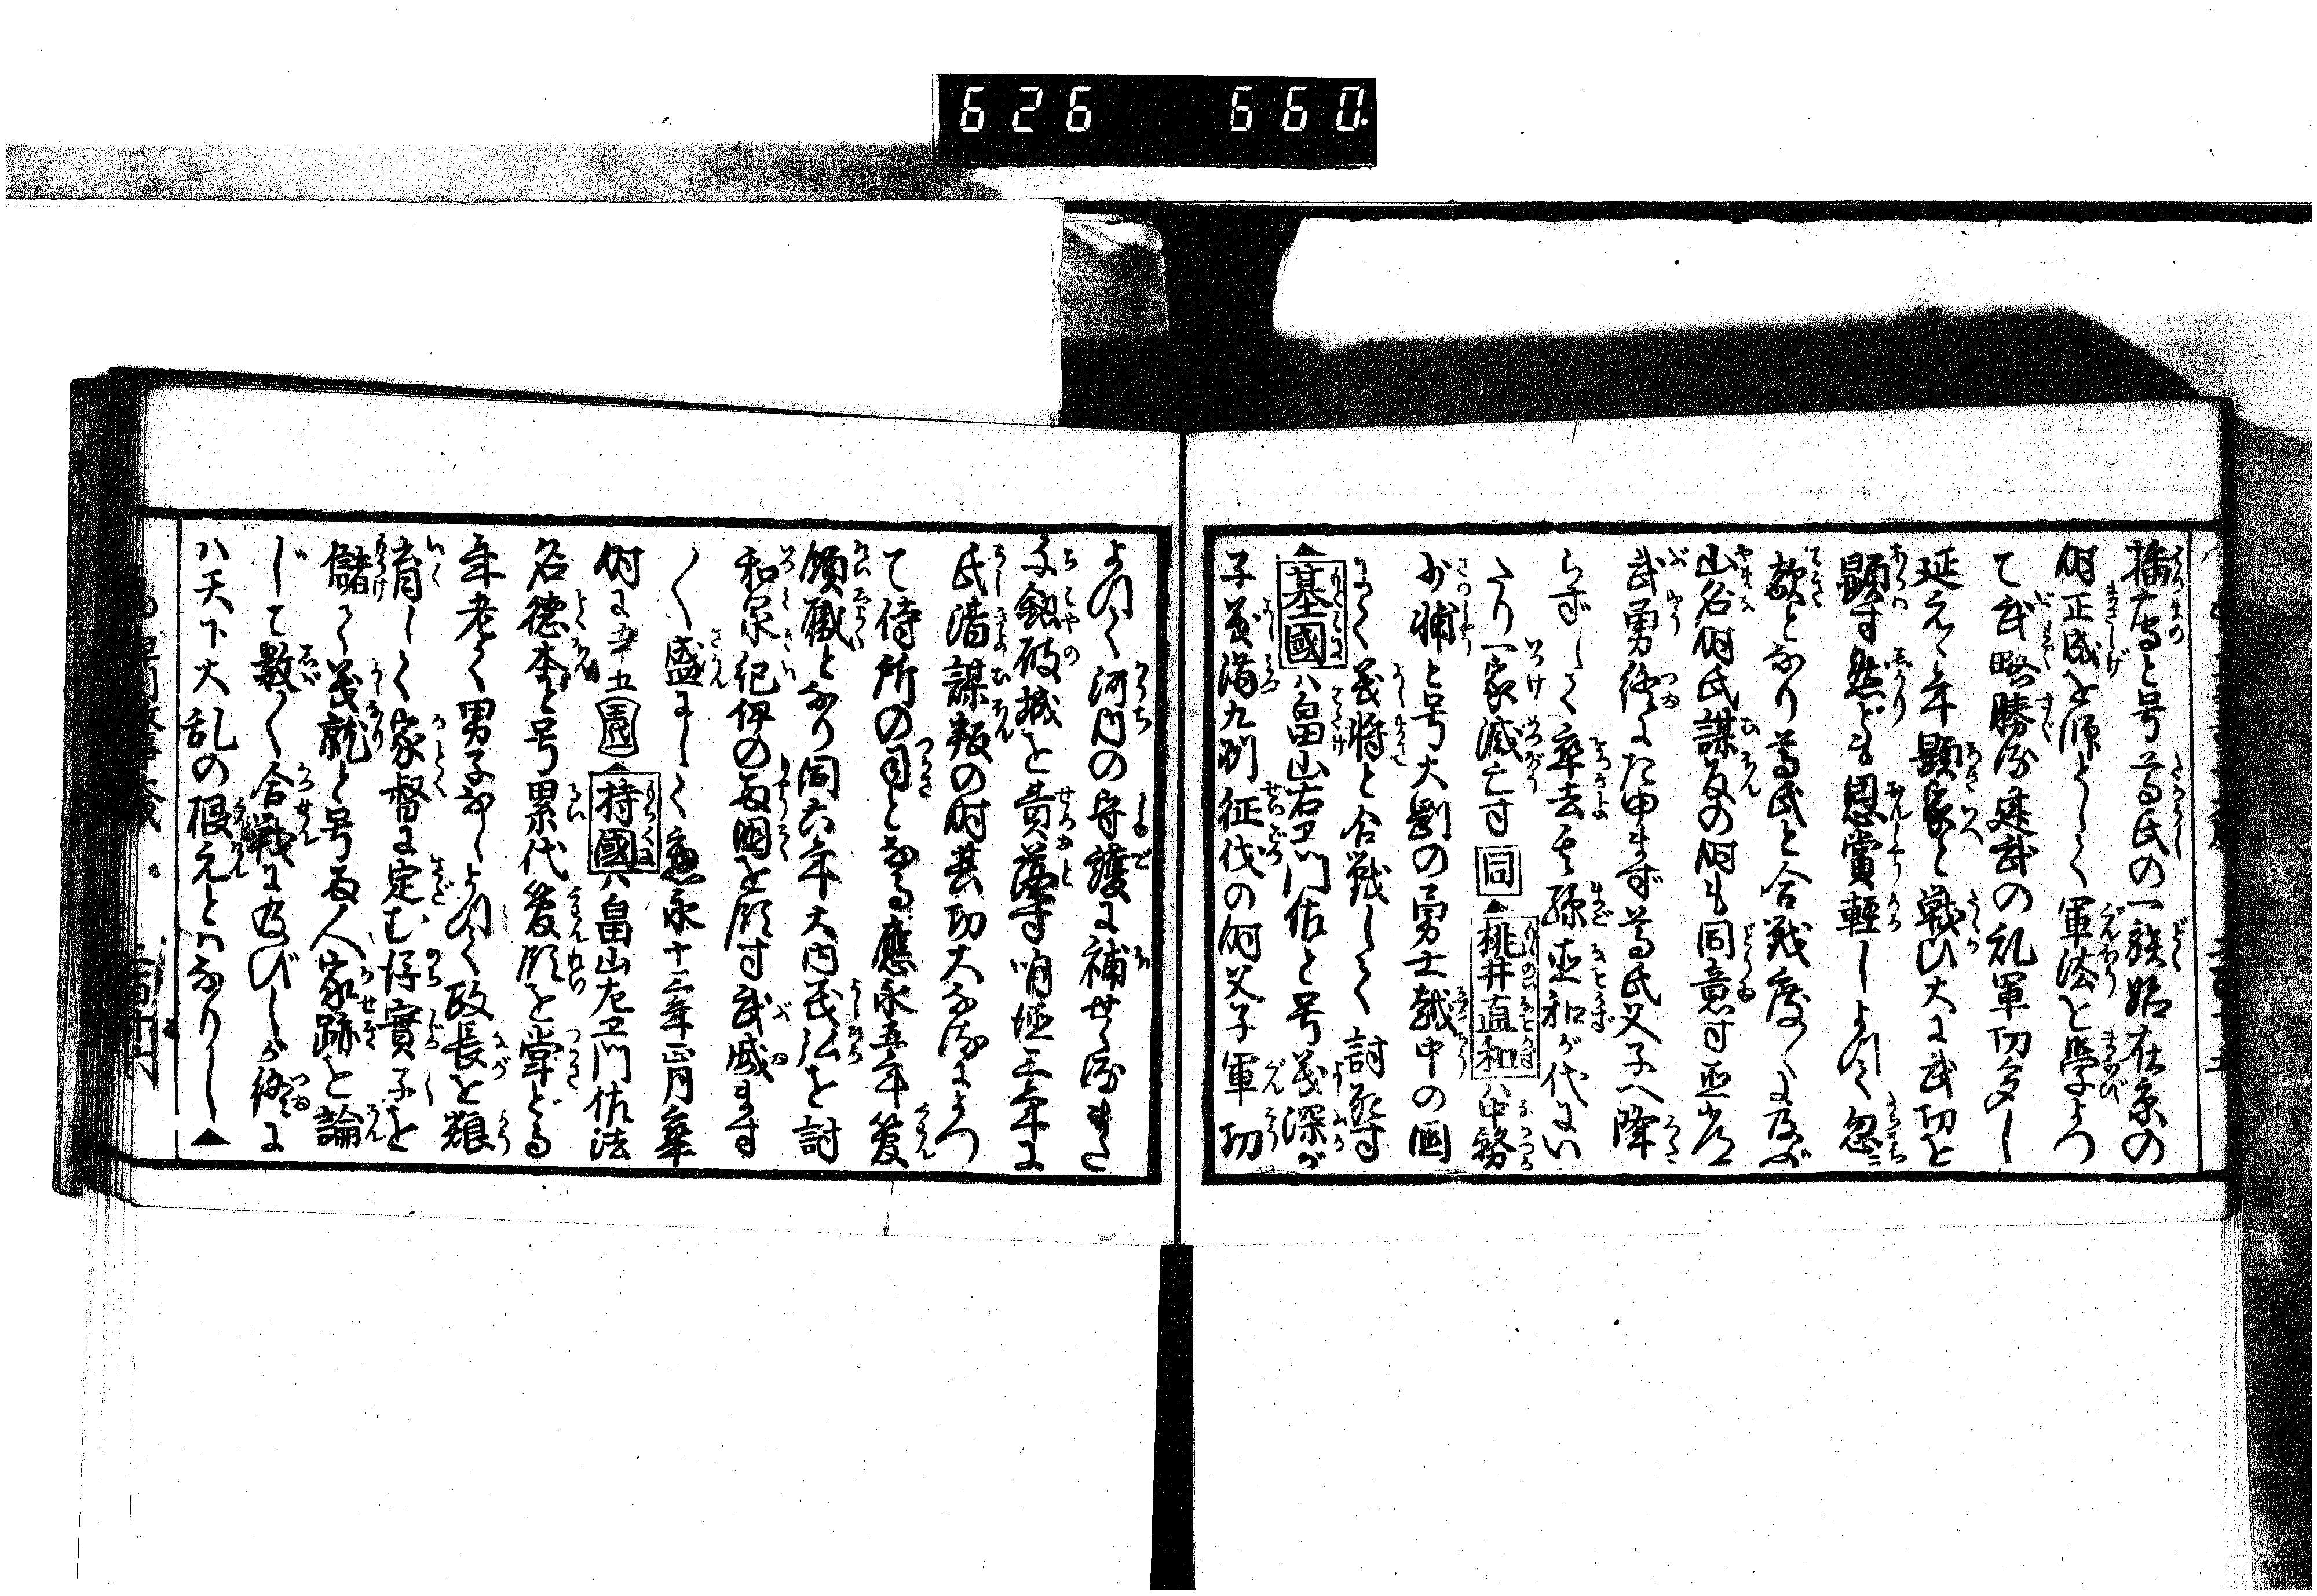 626 660
播磨守と号尊氏の一族始在京の
時正成を師として軍法を学よつ
て武略勝る建武の乱軍功多し
延元々年顕家と戦ひ大に武功を
顕す然ども恩賞軽しよつて忽
敵となり尊氏と合戦度々に及ぶ
山名時氏謀反の時も同意す直常
武勇終にた申まず尊氏父子へ降
らずして卒去其孫直和が代にい
たり一家滅亡す 同▲桃井直和ハ中務
少輔と号大剛の勇士越中の国
にて義将と合戦して討死す
▲基國ハ畠山右ヱ門佐と号義深が
子義満九州征伐の時父子軍功
よつて河内の守護に補せらるまた
千劔破城を責落す明徳三年に
氏清謀叛の時其功大なるによつ
て侍所の司となる應永五年管
領職となり同六年大内義弘を討
和泉紀伊の両国を領す武威ます
〱盛にして應永十三年正月卒
時に五十五 國▲持國ハ畠山左ヱ門佐法
名徳本と号累代管領を掌どる
年老て男子なしよつて政長を猿
育して家督に定む後實子を
儲て義就と号両人家跡を論
じて数〱合戦に及びしが終に
ハ天下大乱の根元とハなりし▲